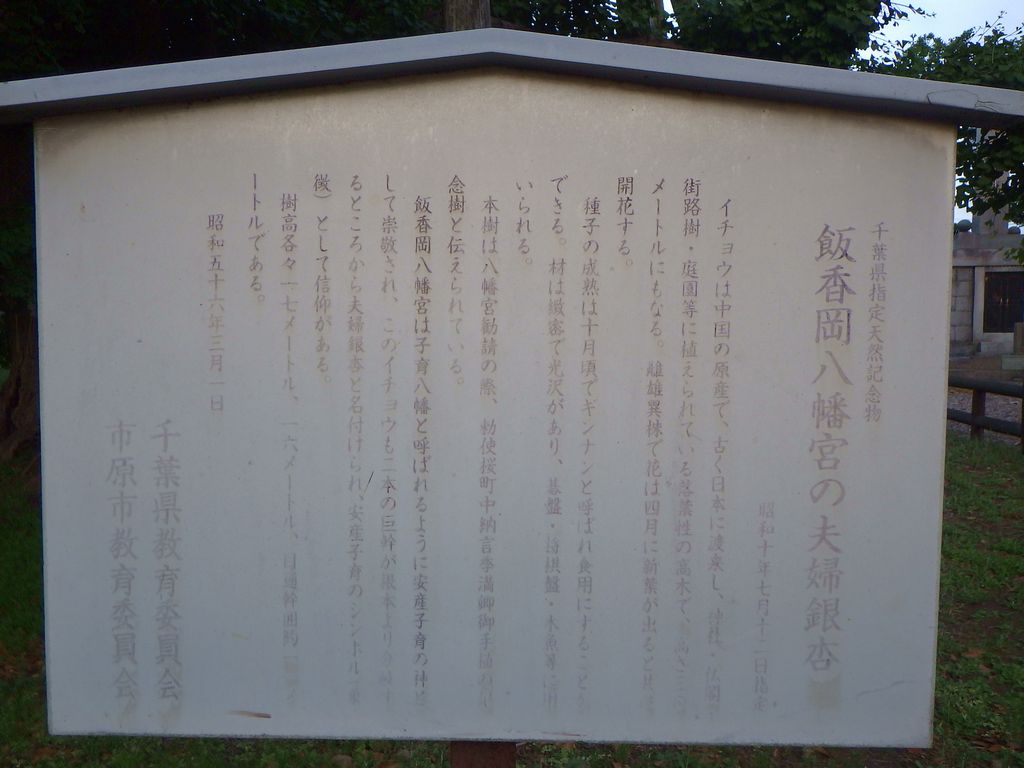 千葉県指定天然記念物
飯香岡八幡宮の夫婦銀杏
昭和十年七月十二日指定
イチョウは中国の原産で、古く日本に渡来し、神社・仏閣
街路樹・庭園等に植えられている落葉性の高木で、高さ三〇
メートルにもなる。雌雄異株で花は四月に新葉が出ると共に
開花する。
種子の成熟は十月頃でギンナンと呼ばれ食用にすることが
できる。材は緻密で光沢があり、碁盤・将棋盤・木魚等に用
いられる。
本樹は八幡宮勧請の際、勅使桜町中納言季満卿御手植の
念樹と伝えられている。
飯香岡八幡宮は子育八幡と呼ばれるように安産子育の神と
して崇敬され、このイチョウも二本の巨幹が根本より分岐す
るところから夫婦銀杏と名付けられ、安産子育のシンボル（象
徴）として信仰がある。
樹高各々一七メートル、一六メートル、目通幹囲約
ートルである。
昭和五十六年三月一日
千葉県教育委員会
市原市教育委員会